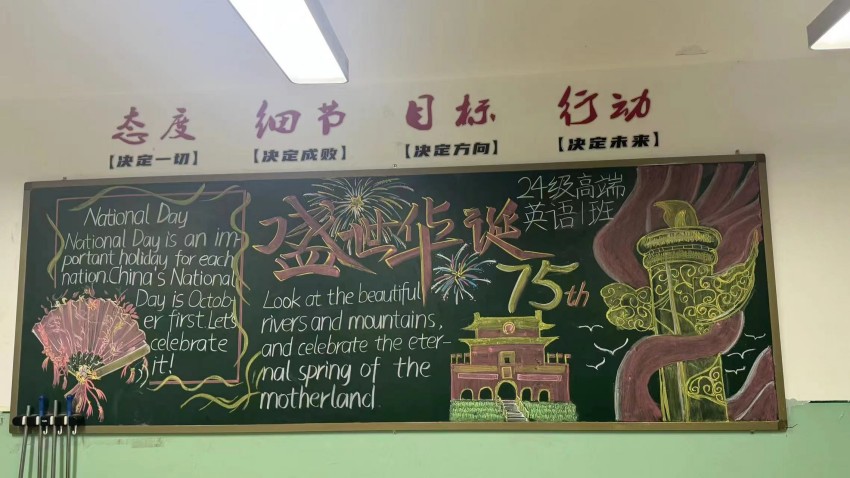 态度 细节 目标 行动
【决定一切】 【决定成败】 【决定方向】 【决定未来】
National Day
National Day is an im-
portant holiday for each
nation.China's National
Day is Octob-
er first.Let's
celebrate
it!
盛世华诞
75th
24级高端
英语1班
Look at the beautiful
rivers and mountains,
and celebrate the eter-
nal spring of the
motherland.